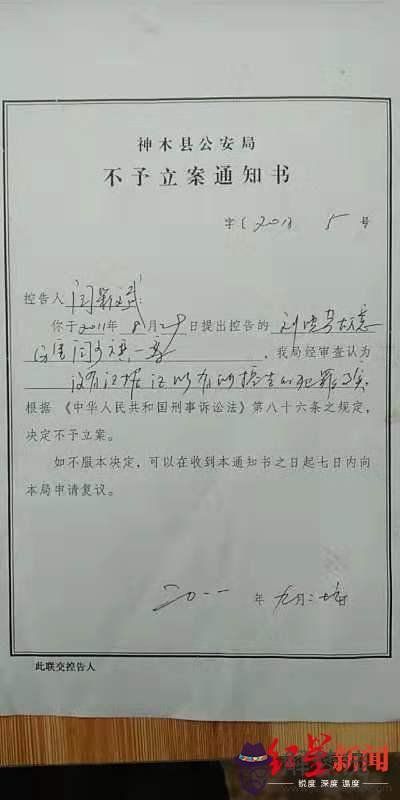 神木县公安局
不予立案通知书
字〔2011 5 号
控告人闫
你于2011年8月29日提出控告的刘
一案，我局经审查认为
没有证据证明有的犯罪事实
根据《中华人民共和国刑事诉讼法》第八十六条之规定，
决定不予立案。
如不服本决定，可以在收到本通知书之日起七日内向
本局申请复议。
二〇一一年九月二
此联交控告人
红星新闻
锐度 深度 温度